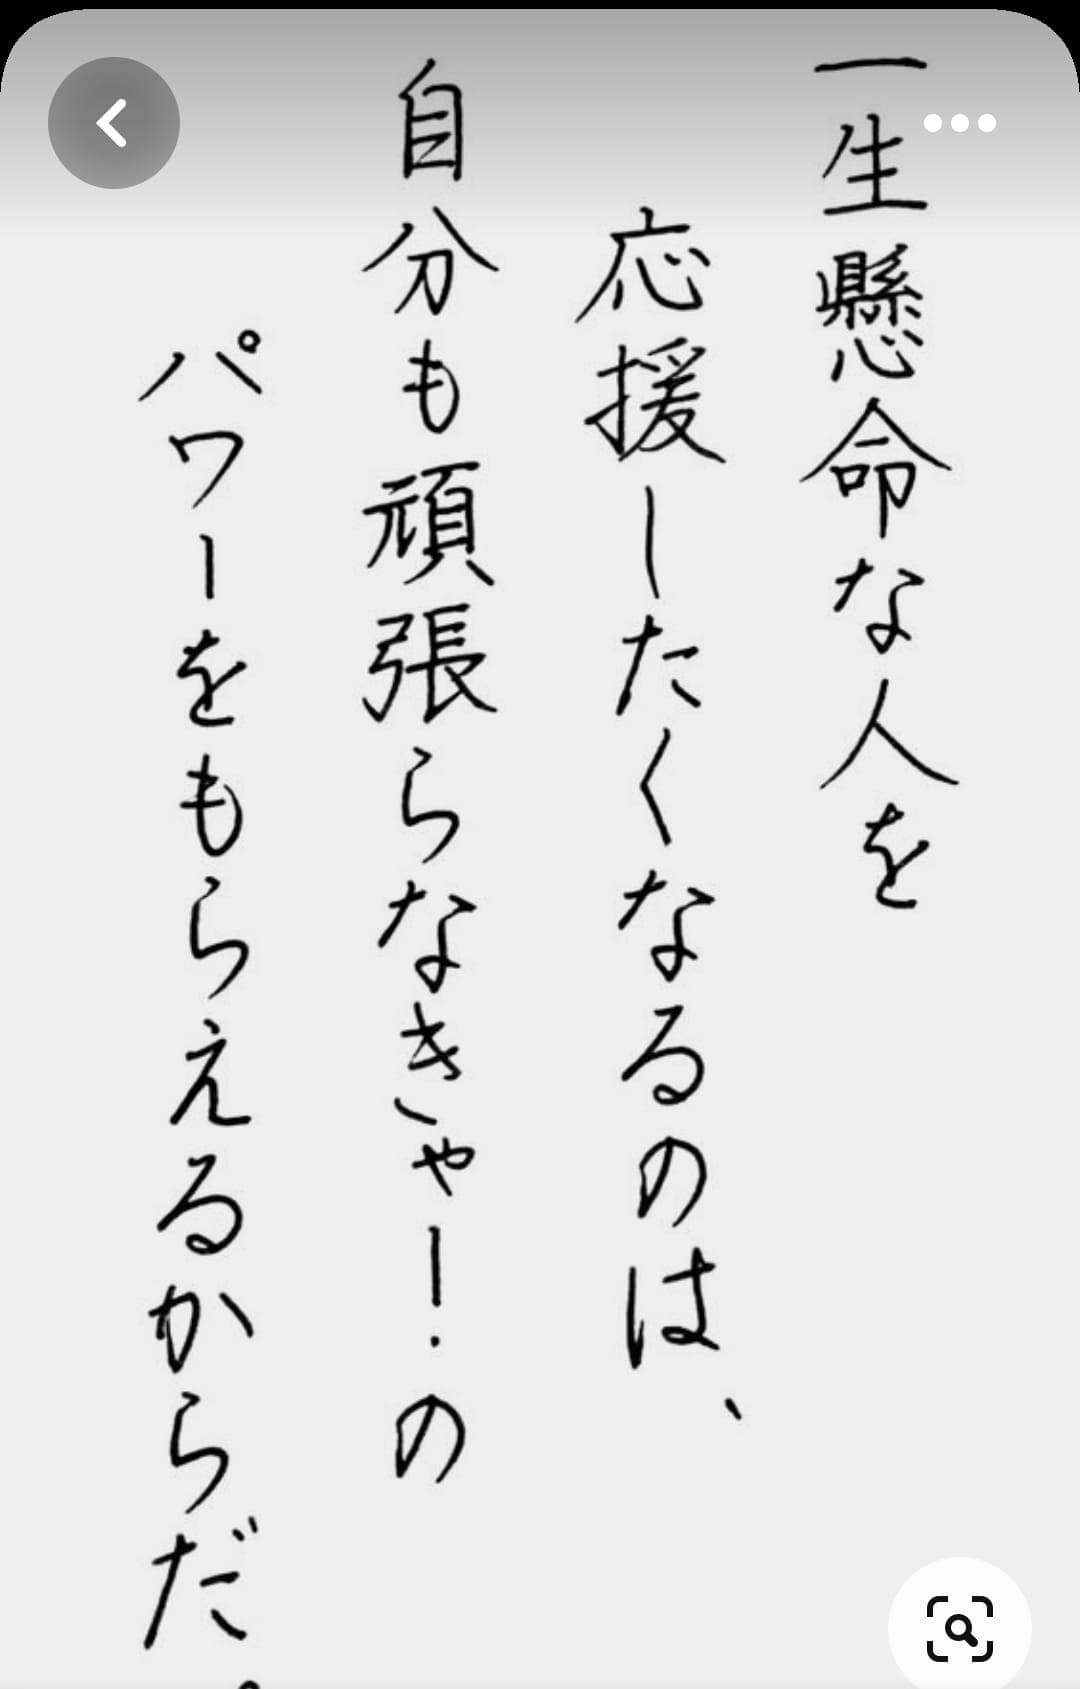 一生懸命な人を
応援したくなるのは、
自分も頑張らなきゃー！の
パワーをもらえるからだ。